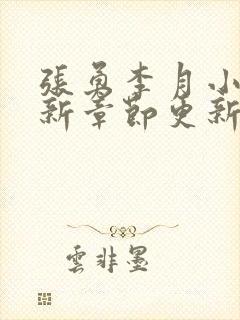 張勇李月小
新章節更新
雲非墨